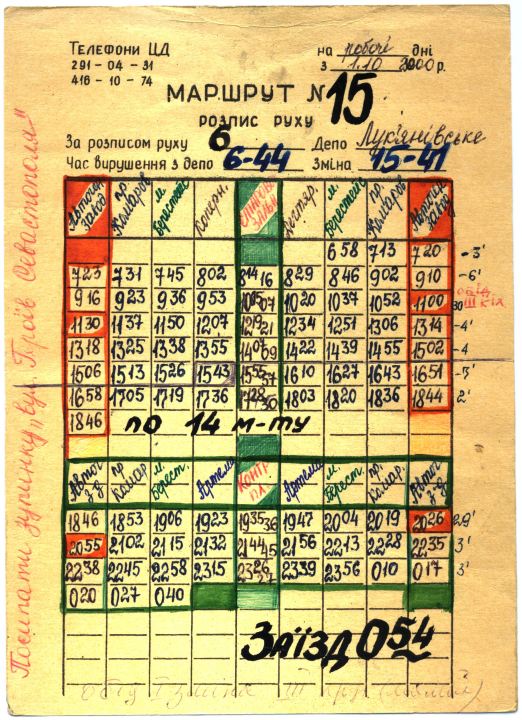 Телефони ЦД на робочі дні
291-04-31 з 1.10 2000 р.
416-10-74
МАРШРУТ № 15
РОЗПИС РУХУ
За розписом руху 6 Депо Лук'янівське
Час вирушення з депо 6-44 Зміна 15-41
Автоген. завод пр. Комаров м. Берестейс. Коперн. Нестяр. м. Берестейс. пр. Комаров Автоген. завод
6 58 7 13 7 20 -3'
7 23 7 31 7 45 8 02 8 14 16 8 29 8 46 9 02 9 10 -6'
9 16 9 23 9 36 9 53 10 05 07 10 20 10 37 10 52 11 00 30 обід
11 30 11 37 11 50 12 07 12 19 21 12 34 12 51 13 06 13 14 -4'
13 18 13 25 13 38 13 55 14 07 09 14 22 14 39 14 55 15 02 -4
15 06 15 13 15 26 15 43 15 55 57 16 10 16 27 16 43 16 51 -7'
16 58 17 05 17 19 17 36 17 28 30 18 03 18 20 18 36 18 44 2'
18 46 по 14 м-ту
Автог. з-д пр. Комар. м. Берест. Артема Контр. пл Артема м. Берест. пр. Комар. Автог. з-д
18 46 18 53 19 06 19 23 19 35 36 19 47 20 04 20 19 20 26 29'
20 55 21 02 21 15 21 32 21 44 45 21 56 22 13 22 28 22 35 3'
22 38 22 45 22 58 23 15 23 26 27 23 39 23 56 0 10 0 17 3'
0 20 0 27 0 40
Заїзд 0 54
Посилати зупинку „вул. Героїв Севастополя"